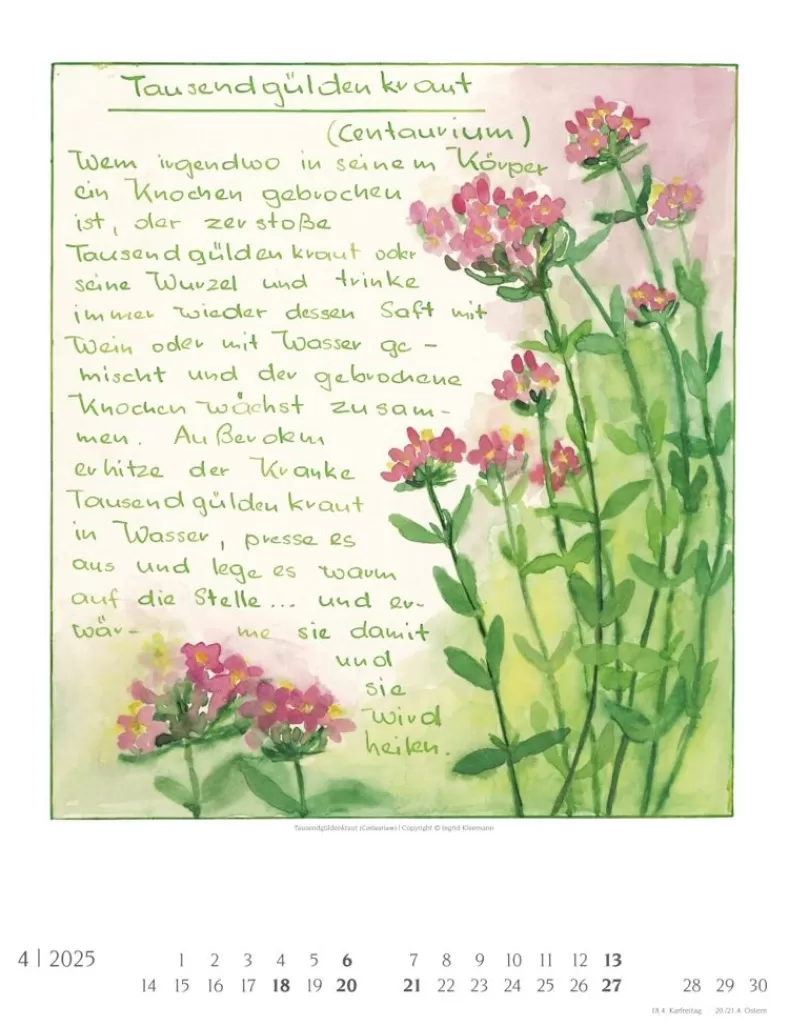 Tausendgüldenkraut
(Centaurium)
Wem irgendwo in seinem Körper
ein Knochen gebrochen
ist, der zerstoße
Tausendgüldenkraut oder
seine Wurzel und trinke
immer wieder dessen Saft mit
Wein oder mit Wasser ge-
mischt und der gebrochene
Knochen wächst zusam-
men. Außerdem
erhitze der Kranke
Tausendgüldenkraut
in Wasser, presse es
aus und lege es warm
auf die Stelle... und er-
wär- me sie damit
und
sie
wird
heilen.
Tausendgüldenkraut (Centaurium) | Copyright © Ingrid Kleemann
4 | 2025
1 2 3 4 5 6 7 8 9 10 11 12 13
14 15 16 17 18 19 20 21 22 23 24 25 26 27 28 29 30
18.4. Karfreitag 20./21.4. Ostern